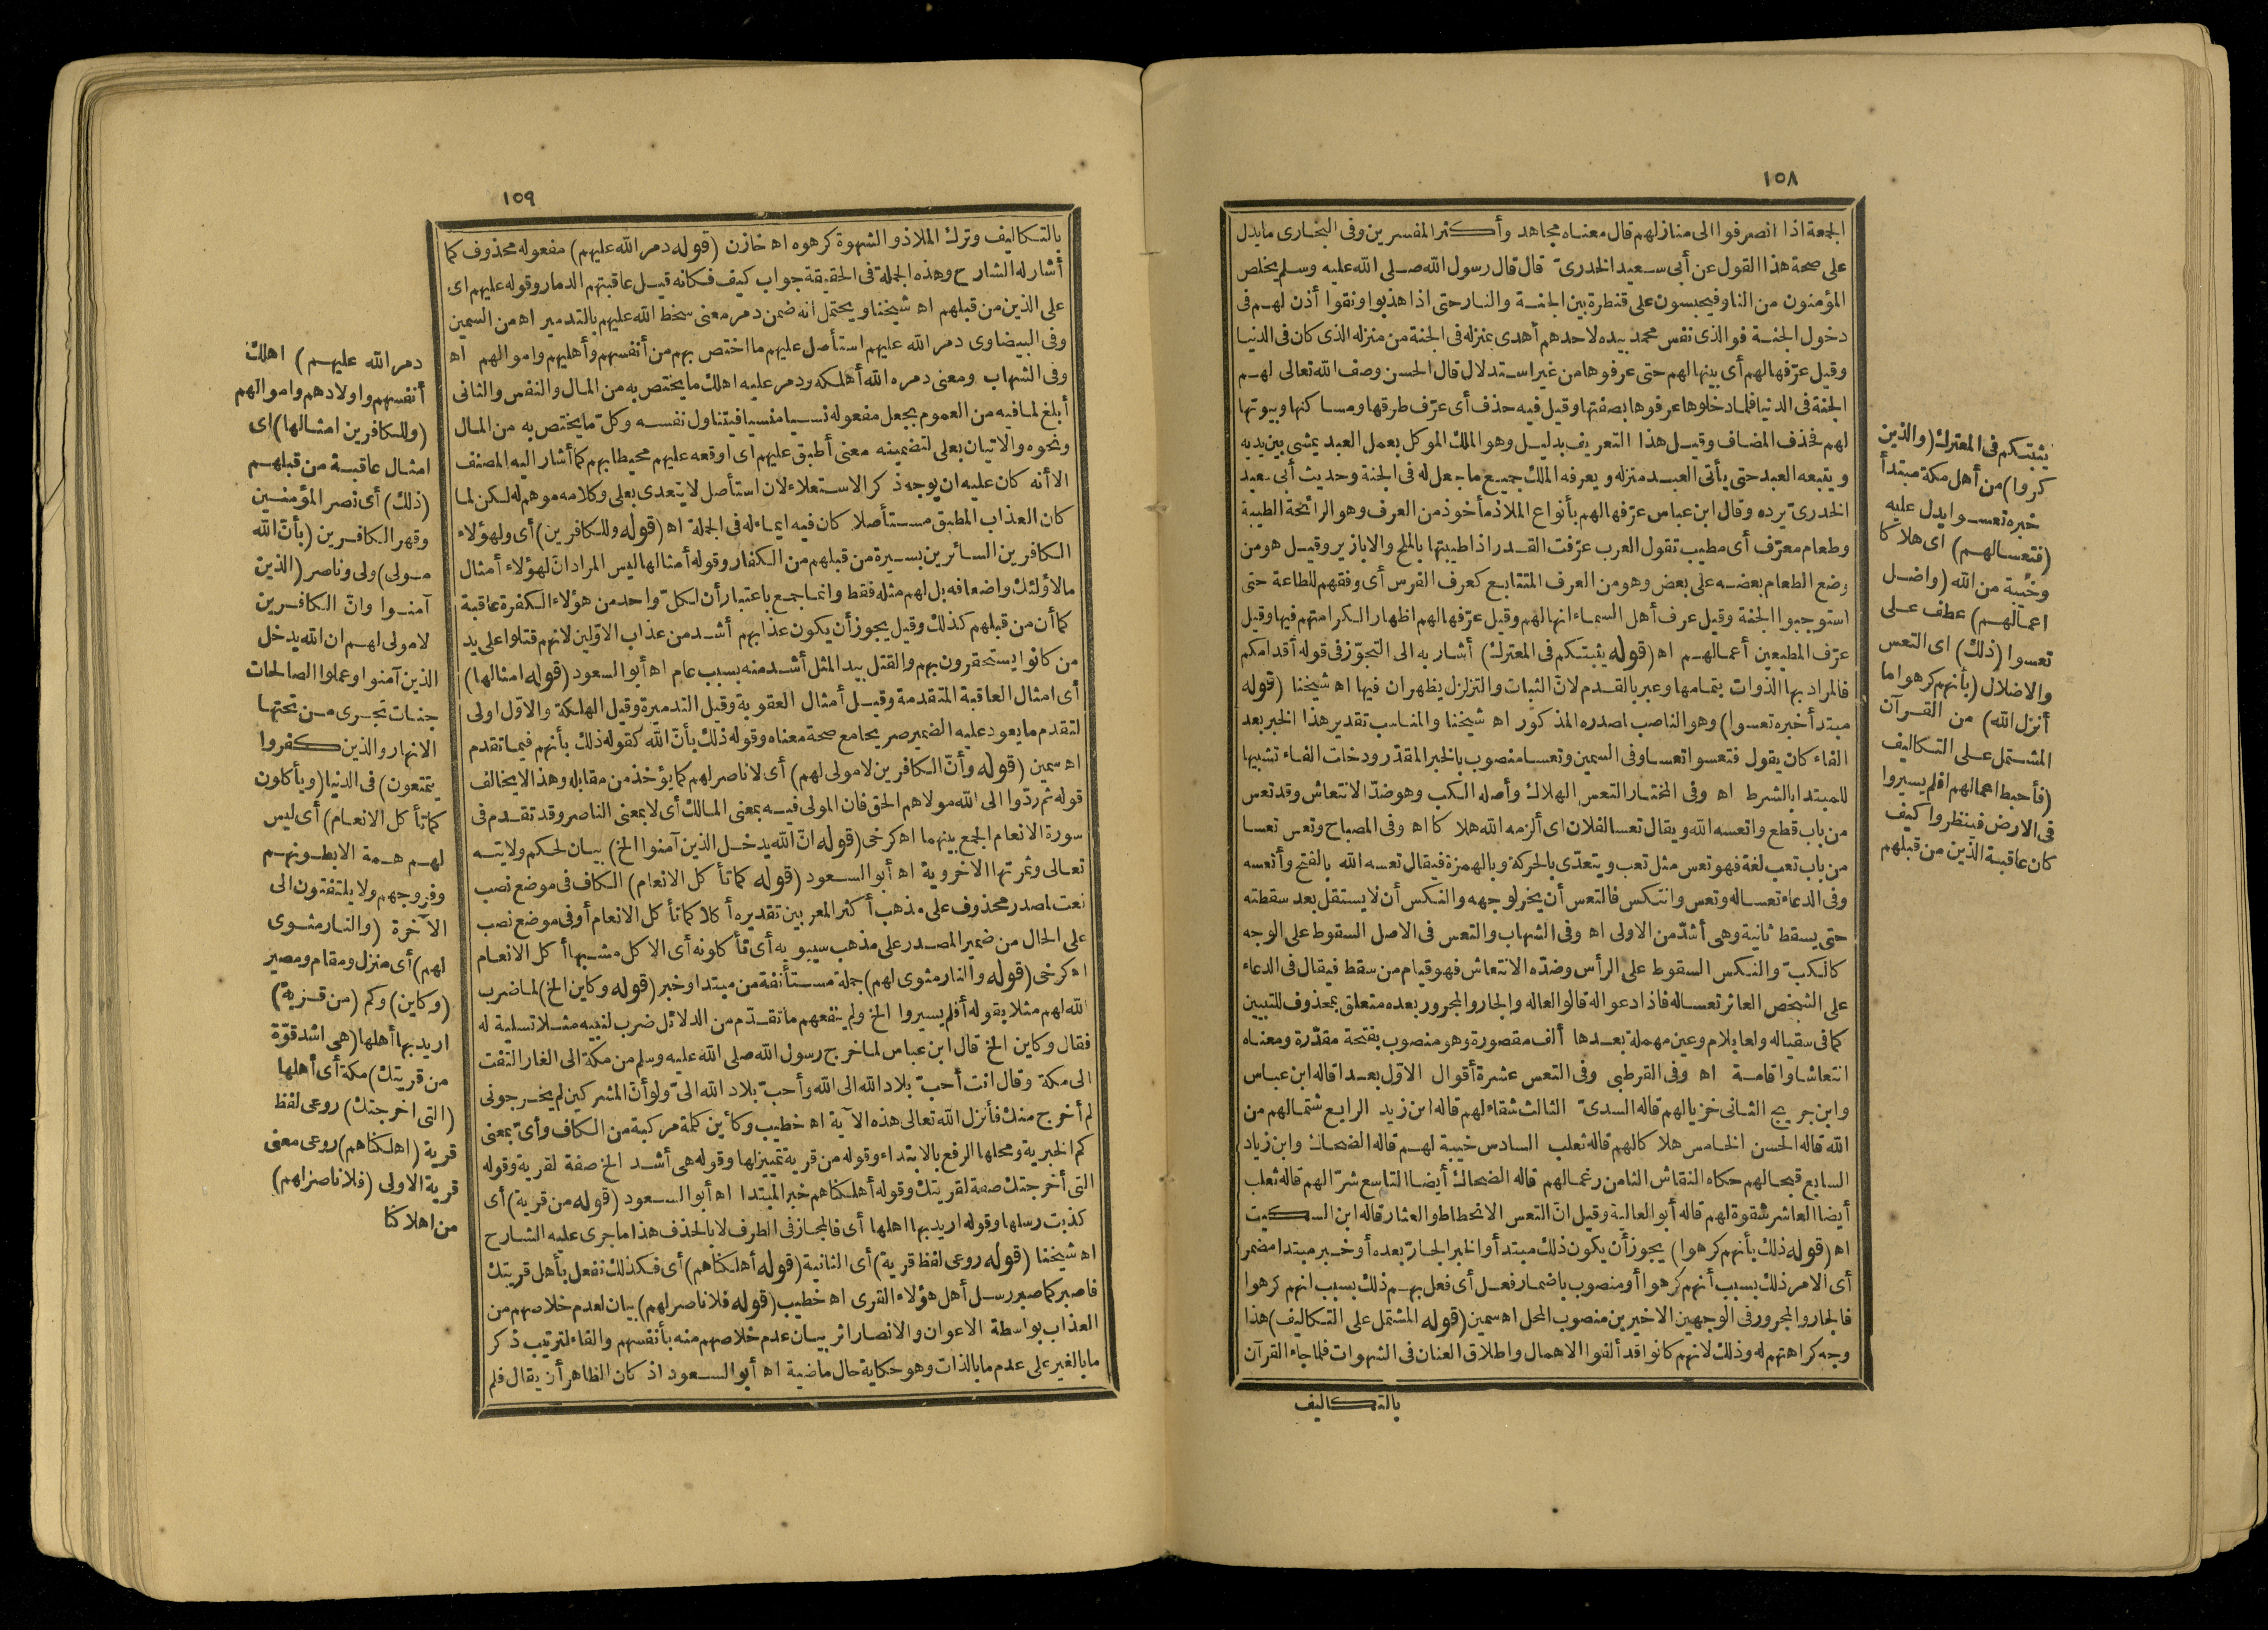 ١٠٨
الجمعة اذا انصرفوا الى منازلهم قال معناه مجاهد وأكثر المفسرين وفى البخارى مايدل
على صحة هذا القول عن أبى سعيد الخدرىّ قال قال رسول الله صلى الله عليه وسلم يخلص
المؤمنون من النار فيحبسون على قنطرة بين الجنة والنار حتى اذا هذبوا ونقوا أذن لهم فى
دخول الجنة فوالذى نفس محمد بيده لاحدهم أهدى بمنزله فى الجنة من منزله الذى كان فى الدنيا
وقيل عرّفها لهم أى بينها لهم حتى عرفوها من غير استدلال قال الحسن وصف الله تعالى لهم
الجنة فى الدنيا فلما دخلوها عرفوها بصفتها وقيل فيه حذف أى عرّف طرقها ومساكنها وبيوتها
لهم فحذف المضاف وقيل هذا التعريف بدليل وهو الملك الموكل بعمل العبد يمشى بين يديه
ويتبعه العبد حتى يأتى العبد منزله ويعرفه الملك جميع ماجعل له فى الجنة وحديث أبى سعيد
الخدرىّ يرده وقال ابن عباس عرّفها لهم بأنواع الملاذ مأخوذ من العرف وهو الرائحة الطيبة
وطعام معرّف أى مطيب تقول العرب عرّفت القدر اذا طيبتها بالملح والابازير وقيل هو من
وضع الطعام بعضه على بعض وهو من العرف المتتابع كعرف الفرس أى وفقهم للطاعة حتى
استوجبوا الجنة وقيل عرف أهل السماء انها لهم وقيل عرّفها لهم اظهارا لكرامتهم فيها وقيل
عرّف المطيعين أعمالهم اه (قوله يثبتكم فى المعترك) أشار به الى التجوّز فى قوله أقدامكم
فالمراد بها الذوات بتمامها وعبر بالقدم لانّ الثبات والتزلزل يظهران فيها اه شيخنا (قوله
مبتدأ خبره تعسوا) وهو الناصب لصدره المذكور اه شيخنا والمناسب تقدير هذا الخبر بعد
الفاء كان يقول فتعسوا تعسا وفى السمين وتعسا منصوب بالخبر المقدّر ودخلت الفاء تشبيها
للمبتدا بالشرط اه وفى المختار التعس الهلاك وأصله الكب وهو ضدّ الانتعاش وقد تعس
من باب قطع واتعسه الله ويقال تعسا لفلان اى ألزمه الله هلاكا اه وفى المصباح وتعس تعسا
من باب تعب لغة فهو تعس مثل تعب ويتعدّى بالحركة وبالهمزة فيقال تعسه الله بالفتح وأتعسه
وفى الدعاء تعسا له وتعس وانتكس فالتعس أن يخر لوجهه والنكس أن لا يستقل بعد سقطته
حتى يسقط ثانية وهى أشدّ من الاولى اه وفى الشهاب والتعس فى الاصل السقوط على الوجه
كالكبّ والنكس السقوط على الرأس وضدّه الانتعاش فهو قيام من سقط فيقال فى الدعاء
على الشخص العاثر تعسا له فاذا دعوا له قالوا لعا له والجار والمجرور بعده متعلق بمحذوف للتبيين
كما فى سقيا له ولعا بلام وعين مهملة بعدها ألف مقصورة وهو منصوب بفتحة مقدّرة ومعناه
انتعاشا واقامة اه وفى القرطبى وفى التعس عشرة أقوال الاوّل بعدا قاله ابن عباس
وابن جريج الثانى خزيا لهم قاله السدىّ الثالث شقاء لهم قاله ابن زيد الرابع شتما لهم من
الله قاله الحسن الخامس هلاكا لهم قاله ثعلب السادس خيبة لهم قاله الضحاك وابن زياد
السابع قبحا لهم حكاه النقاش الثامن رغما لهم قاله الضحاك أيضا التاسع شرّا لهم قاله ثعلب
أيضا العاشر شقوة لهم قاله أبو العالية وقيل انّ التعس الانحطاط والعثار قاله ابن السكيت
اه (قوله ذلك بأنهم كرهوا) يجوز أن يكون ذلك مبتدأ والخبر الجارّ بعده أو خبر مبتدا مضمر
أى الامر ذلك بسبب أنهم كرهوا أو منصوب باضمار فعل أى فعل بهم ذلك بسبب انهم كرهوا
فالجار والمجرور فى الوجهين الاخيرين منصوب المحل اه سمين (قوله المشتمل على التكاليف) هذا
وجه كراهتهم له وذلك لانهم كانوا قد ألفوا الاهمال واطلاق العنان فى الشهوات فلما جاء القرآن
بالتكاليف
يثبتكم فى المعترك (والذين
كفروا) من أهل مكة مبتدأ
خبره تعسوا يدل عليه
(فتعسا لهم) اى هلاكا
وخيبة من الله (واضل
اعمالهم) عطف على
تعسوا (ذلك) اى التعس
والاضلال (بأنهم كرهوا ما
أنزل الله) من القرآن
المشتمل على التكاليف
(فأحبط اعمالهم افلم يسيروا
فى الارض فينظروا كيف
كان عاقبة الذين من قبلهم
١٠٩
بالتكاليف وترك الملاذ والشهوة كرهوه اه خازن (قوله دمر الله عليهم) مفعوله محذوف كما
أشار له الشارح وهذه الجملة فى الحقيقة جواب كيف فكانه قيل عاقبتهم الدمار وقوله عليهم اى
على الذين من قبلهم اه شيخنا ويحتمل انه ضمن دمر معنى سخط الله عليهم بالتدمير اه من السمين
وفى البيضاوى دمر الله عليهم استأصل عليهم ما اختص بهم من أنفسهم وأهليهم واموالهم اه
وفى الشهاب ومعنى دمره الله أهلكه ودمر عليه اهلك ما يختص به من المال والنفس والثانى
أبلغ لما فيه من العموم بجعل مفعوله نسيا منسيا فيتناول نفسه وكلّ ما يختص به من المال
ونحوه والاتيان بعلى لتضمينه معنى أطبق عليهم اى اوقعه عليهم محيطا بهم كما أشار اليه المصنف
الا أنه كان عليه ان يوجه ذكر الاستعلاء لان استأصل لا يتعدى بعلى وكلامه موهم له لكن لما
كان العذاب المطبق مستأصلا كان فيه ايماء له فى الجملة اه (قوله وللكافرين) أى ولهؤلاء
الكافرين السائرين بسيرة من قبلهم من الكفار وقوله أمثالها ليس المراد انّ لهؤلاء أمثال
ما لاولئك واضعافه بل لهم مثله فقط وانما جمع باعتبار أن لكلّ واحد من هؤلاء الكفرة عاقبة
كما أن من قبلهم كذلك وقيل يجوز أن يكون عذابهم أشد من عذاب الاوّلين لانهم قتلوا على يد
من كانوا يستحقرون بهم والقتل بيد المثل أشد منه بسبب عام اه أبو السعود (قوله امثالها)
أى امثال العاقبة المتقدمة وقيل أمثال العقوبة وقيل التدميرة وقيل الهلكة والاوّل اولى
لتقدم ما يعود عليه الضمير صريحا مع صحة معناه وقوله ذلك بأنّ الله كقوله ذلك بأنهم فيما تقدم
اه سمين (قوله وأنّ الكافرين لا مولى لهم) أى لا ناصر لهم كما يؤخذ من مقابله وهذا لا يخالف
قوله ثم ردّوا الى الله مولاهم الحق فان المولى فيه بمعنى المالك أى لا بمعنى الناصر وقد تقدم فى
سورة الانعام الجمع بينهما اه كرخى (قوله انّ الله يدخل الذين آمنوا الخ) بيان لحكم ولايته
تعالى وثمرتها الاخروية اه أبو السعود (قوله كما تأكل الانعام) الكاف فى موضع نصب
نعت لصدر محذوف على مذهب أكثر المعربين تقديره أكلا كما تأكل الانعام أو فى موضع نصب
على الحال من ضمير المصدر على مذهب سيبويه أى تأكلونه أى الاكل مشبها أكل الانعام
اه كرخى (قوله والنار مثوى لهم) جملة مستأنفة من مبتدا وخبر (قوله وكاين الخ) لما ضرب
الله لهم مثلا بقوله أفلم يسيروا الخ ولم ينفعهم ما تقدّم من الدلائل ضرب لنبيه مثلا تسلية له
فقال وكاين الخ قال ابن عباس لما خرج رسول الله صلى الله عليه وسلم من مكة الى الغار التفت
الى مكة وقال انت أحبّ بلاد الله الى الله وأحبّ بلاد الله الىّ ولو أنّ المشركين لم يخرجونى
لم أخرج منك فأنزل الله تعالى هذه الآية اه خطيب وكأين كلمة مركبة من الكاف وأىّ بمعنى
كم الخبرية ومحلها الرفع بالابتداء وقوله من قرية تمييز لها وقوله هى أشد الخ صفة لقرية وقوله
التى أخرجتك صفة لقريتك وقوله أهلكناهم خبر المبتدا اه أبو السعود (قوله من قرية) أى
كذبت رسلها وقوله اريد بها اهلها أى فالمجاز فى الطرف لا بالحذف هذا ما جرى عليه الشارح
اه شيخنا (قوله روعى لفظ قرية) أى الثانية (قوله أهلكناهم) أى فكذلك نفعل بأهل قريتك
فاصبر كما صبر رسل أهل هؤلاء القرى اه خطيب (قوله فلا ناصر لهم) بيان لعدم خلاصهم من
العذاب بواسطة الاعوان والانصار اثر بيان عدم خلاصهم منه بأنفسهم والفاء لترتيب ذكر
ما بالغير على عدم ما بالذات وهو حكاية حال ماضية اه أبو السعود اذ كان الظاهر أن يقال فلم
دمر الله عليهم) اهلك
أنفسهم واولادهم واموالهم
(وللكافرين امثالها) اى
امثال عاقبة من قبلهم
(ذلك) أى نصر المؤمنين
وقهر الكافرين (بأنّ الله
مولى) ولى وناصر (الذين
آمنوا وانّ الكافرين
لا مولى لهم ان الله يدخل
الذين آمنوا وعملوا الصالحات
جنات تجرى من تحتها
الانهار والذين كفروا
يتمتعون) فى الدنيا (ويأكلون
كما تأكل الانعام) أى ليس
لهم همة الا بطونهم
وفروجهم ولا يلتفتون الى
الآخرة (والنار مثوى
لهم) أى منزل ومقام ومصير
(وكاين) وكم (من قرية)
اريد بها أهلها (هى اشد قوّة
من قريتك) مكة أى أهلها
(التى اخرجتك) روعى لفظ
قرية (اهلكناهم) روعى معنى
قرية الاولى (فلا ناصر لهم)
من اهلاكنا